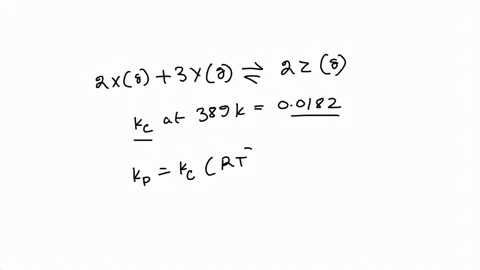 2x(g) + 3y(g) ⇌ 2z(g)
kc at 389k = 0.0182
kp = kc (RT